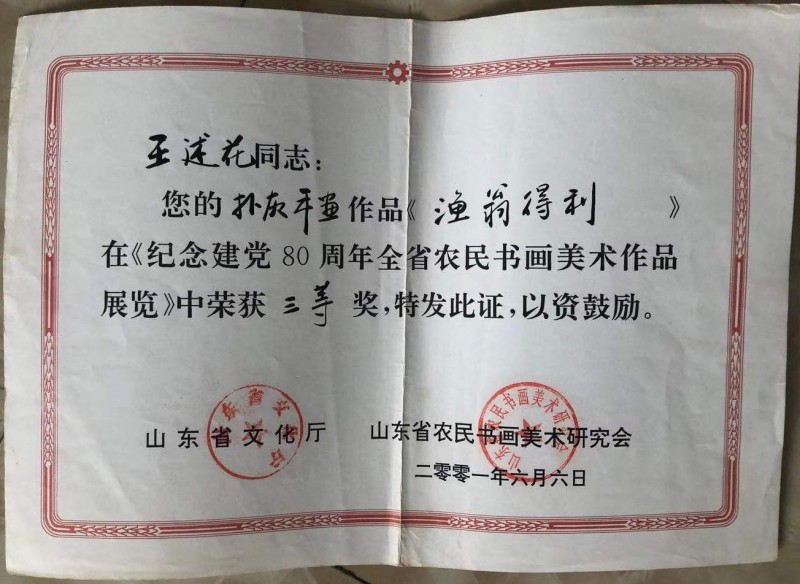 王述花同志：
您的扑灰年画作品《渔翁得利》
在《纪念建党80周年全省农民书画美术作品
展览》中荣获三等奖，特发此证，以资鼓励。
山东省文化厅
山东省农民书画美术研究会
二零零一年六月六日
山东省文化厅
山东省农民书画美术研究会